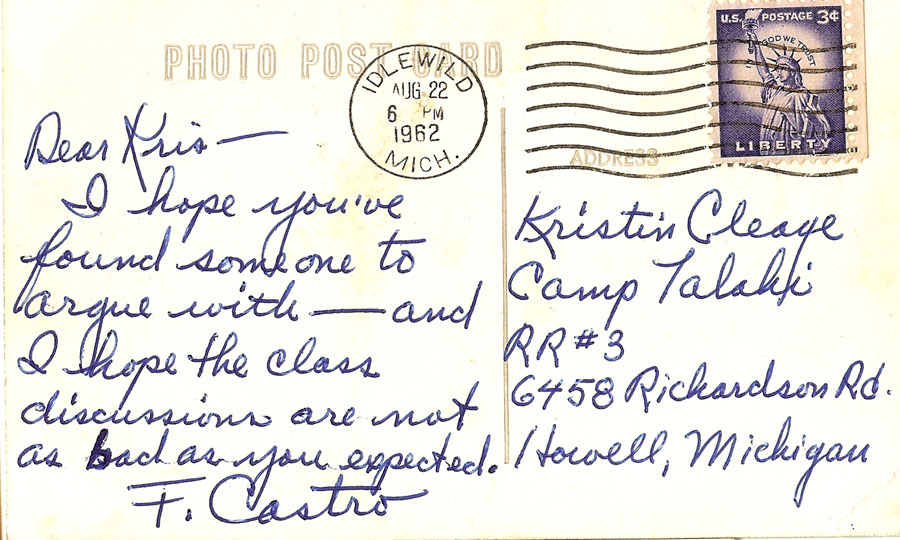 PHOTO POST CARD
IDLEWILD
AUG 22
6 PM
1962
MICH.
U.S. POSTAGE 3¢
IN GOD WE TRUST
LIBERTY
ADDRESS
Dear Kris—
I hope you've
found someone to
argue with — and
I hope the class
discussions are not
as bad as you expected.
F. Castro
Kristin Cleage
Camp Talahi
RR #3
6458 Richardson Rd.
Howell, Michigan